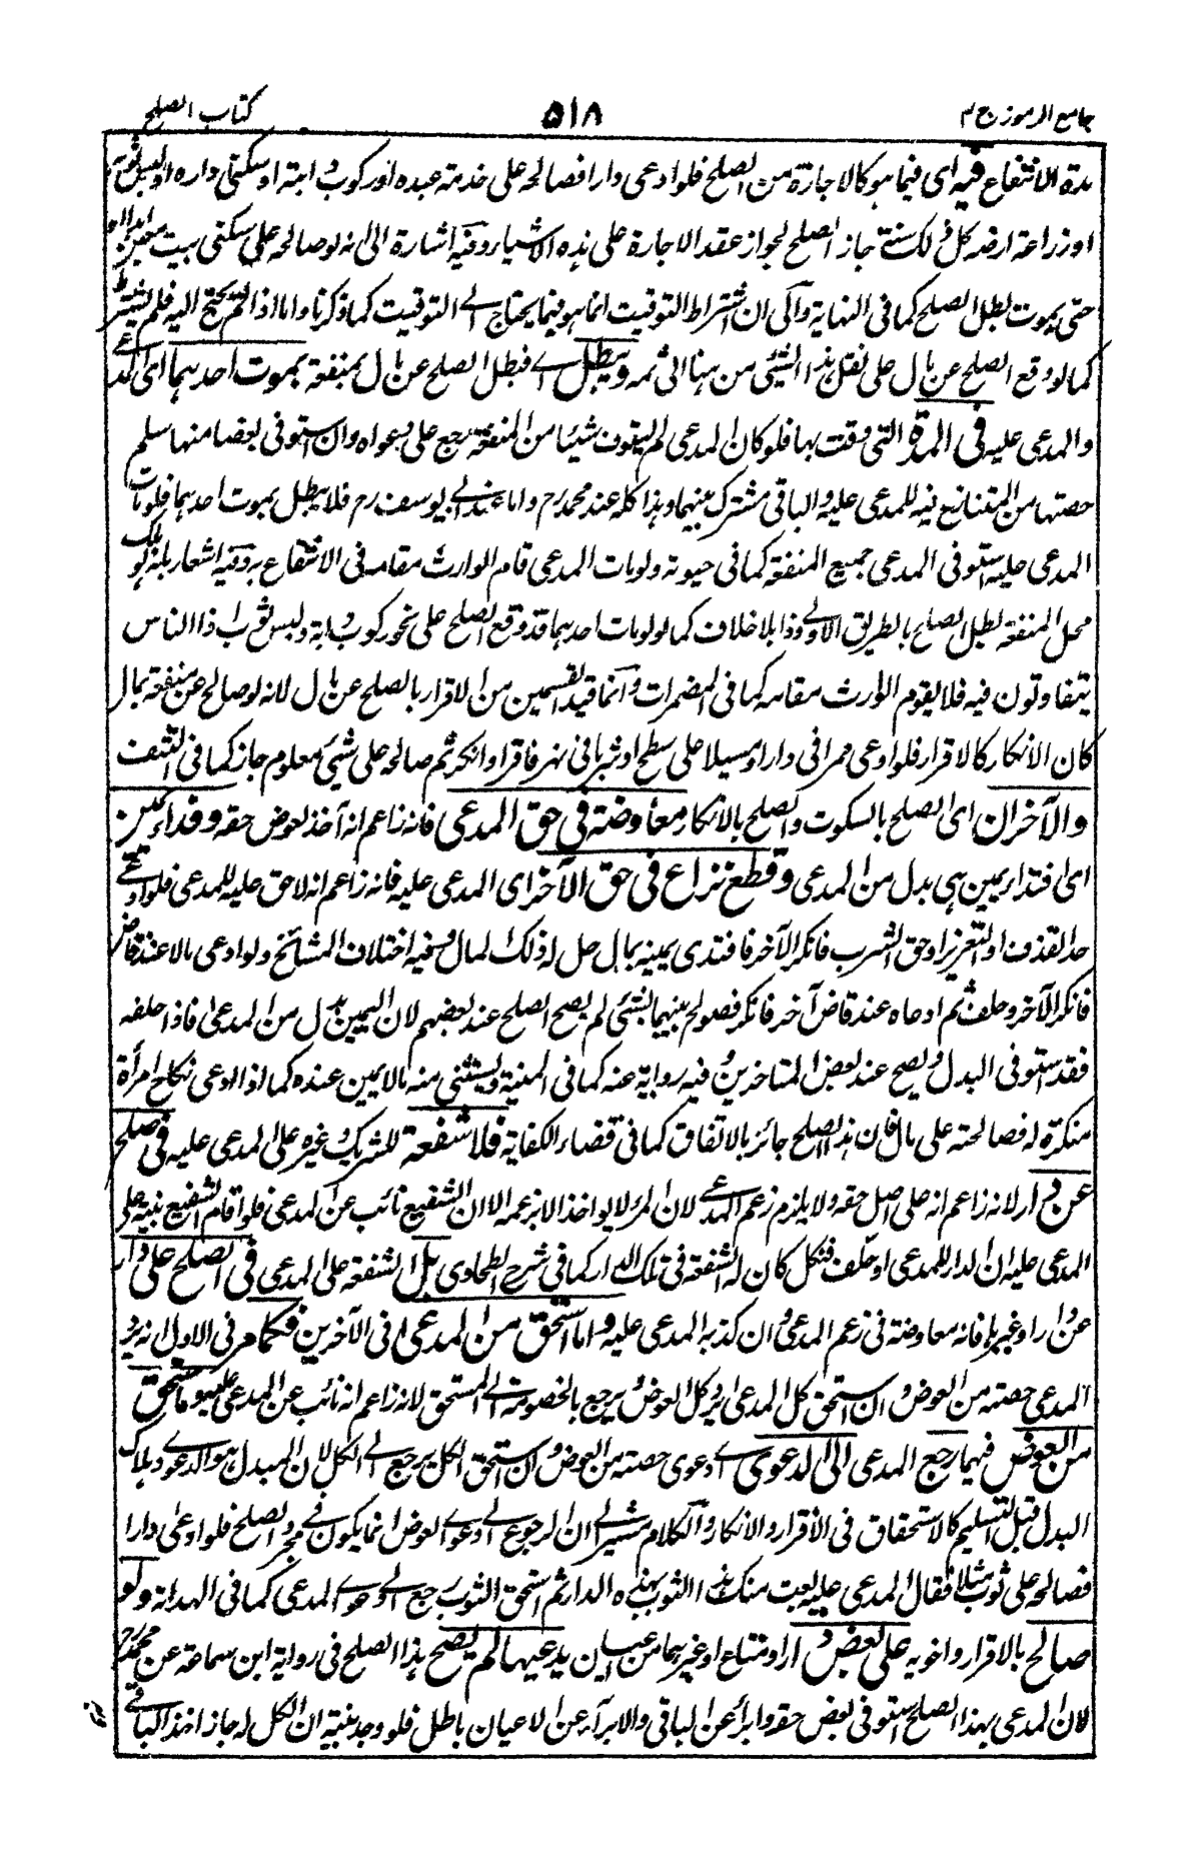 جامع الرموز ج ٢ ۵۱۸ كتاب الصلح
مدة الانتفاع فيه اى فيما هو كالاجارة من الصلح فلو ادعى دارا فصالحه على خدمة عبده او ركوب دابته او سكنى داره او لبس ثوبه
او زراعة ارضه كل ذلك سنة جاز الصلح لجواز عقد الاجارة على هذه الاشياء وفيه اشارة الى انه لو صالحه على سكنى بيت معين ابدا او
حتى يموت بطل الصلح كما فى النهاية والى ان اشتراط التوقيت انما هو فيما يحتاج الى التوقيت كما ذكرنا واما اذا لم يحتج اليه فلم يشترط
كما لو وقع الصلح عن مال على نقل هذا الشئ من ههنا الى ثمه ويبطل اى فبطل الصلح عن مال بمنفعة بموت احدهما اى المدعى
والمدعى عليه فى المدة التى وقعت بها فلو كان المدعى لم يستوف شيئا من المنفعة رجع على دعواه وان استوفى بعضا منها سلم
حصتها من المتنازع فيه للمدعى عليه والباقى مشترك بينهما وهذا كله عند محمد رح واما عند ابى يوسف رح فلا يبطل بموت احدهما فلو مات
المدعى عليه استوفى المدعى جميع المنفعة كما فى حيوته ولو مات المدعى قام الوارث مقامه فى الانتفاع به وفيه اشعار بانه لو هلك
محل المنفعة لبطل الصلح بالطريق الاولى وذا بلا خلاف كما لو مات احدهما قد وقع الصلح على نحو ركوب دابة ولبس ثوب اذ الناس
يتفاوتون فيه فلا يقوم الوارث مقامه كما فى المضمرات وانما قيد القسمين من الاقرار بالصلح عن مال لانه لو صالح عن منفعة بمال
كان الانكار كالاقرار فلو ادعى ممرا فى دار او مسيلا على سطح او شربا فى نهر فاقر او انكر ثم صالحه على شئ معلوم جاز كما فى التتف
والآخران اى الصلح بالسكوت والصلح بالانكار معاوضة فى حق المدعى فانه زاعم انه آخذ لعوض حقه وفداء يمين
اى افتداء يمين هى بدل من المدعى وقطع نزاع فى حق الآخر اى المدعى عليه فانه زاعم انه لا حق عليه للمدعى فلو ادعى
حد القذف او التعزير او حق الشرب فانكر الآخر فافتدى يمينه بمال حل له ذلك المال وفيه اختلاف المشائخ ولو ادعى مالا عند قاض
فانكر الآخر وحلف ثم ادعاه عند قاض آخر فانكر فصولح بينهما بشئ لم يصح الصلح عند بعضهم لان اليمين بدل من المدعى فاذا حلفه
فقد استوفى البدل ويصح عند بعض المتاخرين وفيه رواية عنه كما فى المنية ويستثنى منه مالا يمين عنده كما اذا ادعى نكاح امرأة
منكرة له فصالحته على مال فان هذا الصلح جائز بالاتفاق كما فى قضاء الكفاية فلا شفعة للشريك وغيره على المدعى عليه فى صلح
عن دار لانه زاعم انه على اصل حقه ولا يلزم زعم المدعى لان المرء لا يواخذ الا بزعمه الا ان الشفيع نائب عن المدعى فلو اقام الشفيع بينة على
المدعى عليه ان الدار للمدعى او حلف فنكل كان له الشفعة فى تلك الدار كما فى شرح الطحاوى بل الشفعة على المدعى فى الصلح على دار
عن دار او غيرها فانه معاوضة فى زعم المدعى وان كذبه المدعى عليه واما استحق من المدعى فى الآخرين فكما مر فى الاول انه يرد
المدعى حصته من العوض وان استحق كل المدعى يرد كل العوض ويرجع بالخصومة الى المستحق لانه زاعم انه نائب عن المدعى عليه وما استحق
من العوض فيهما رجع المدعى الى الدعوى اى دعوى حصته من العوض وان استحق الكل يرجع الى الكل لان المبدل هو الدعوى وهلاك
البدل قبل التسليم كالاستحقاق فى الاقرار والانكار والكلام مشير الى ان الرجوع الى دعوى العوض انما يكون فى مجرد الصلح فلو ادعى دارا
فصالحه على ثوب مثلا فقال المدعى عليه بعت منك هذا الثوب بهذه الدار ثم استحق الثوب رجع الى دعوى المدعى كما فى الهداية ولو
صالح بالاقرار واخويه على بعض دار او متاع او غيرهما من اعيان يدعيها لم يصح هذا الصلح فى رواية ابن سماعة عن محمد رح
لان المدعى بهذا الصلح استوفى بعض حقه وابرأ عن الباقى والابرآء عن الاعيان باطل فلو وجد بينة ان الكل له جاز اخذ الباقى